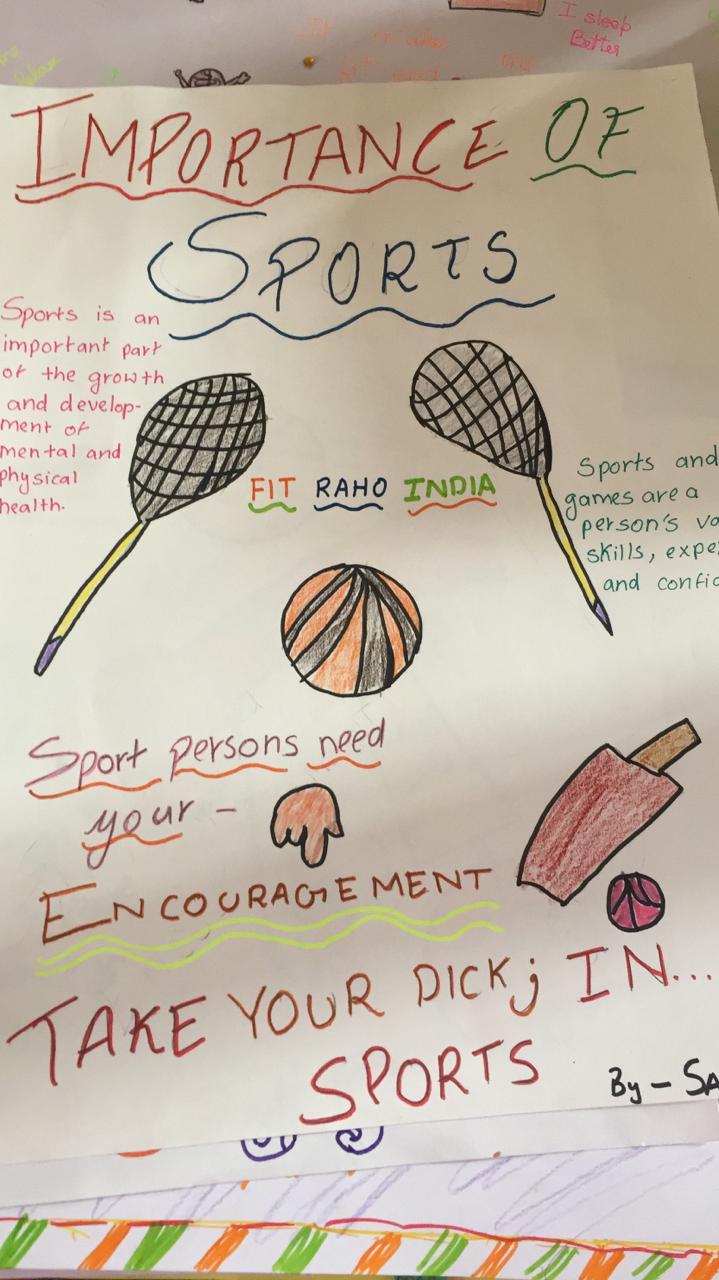 I sleep
Better
IMPORTANCE OF
SPORTS
Sports is an
important part
of the growth
and develop-
ment of
mental and
physical
health.
FIT RAHO INDIA
Sports and
games are a
person's va
skills, expe
and confid
Sport persons need
your -
ENCOURAGEMENT
TAKE YOUR DICK; IN...
SPORTS
By - SA